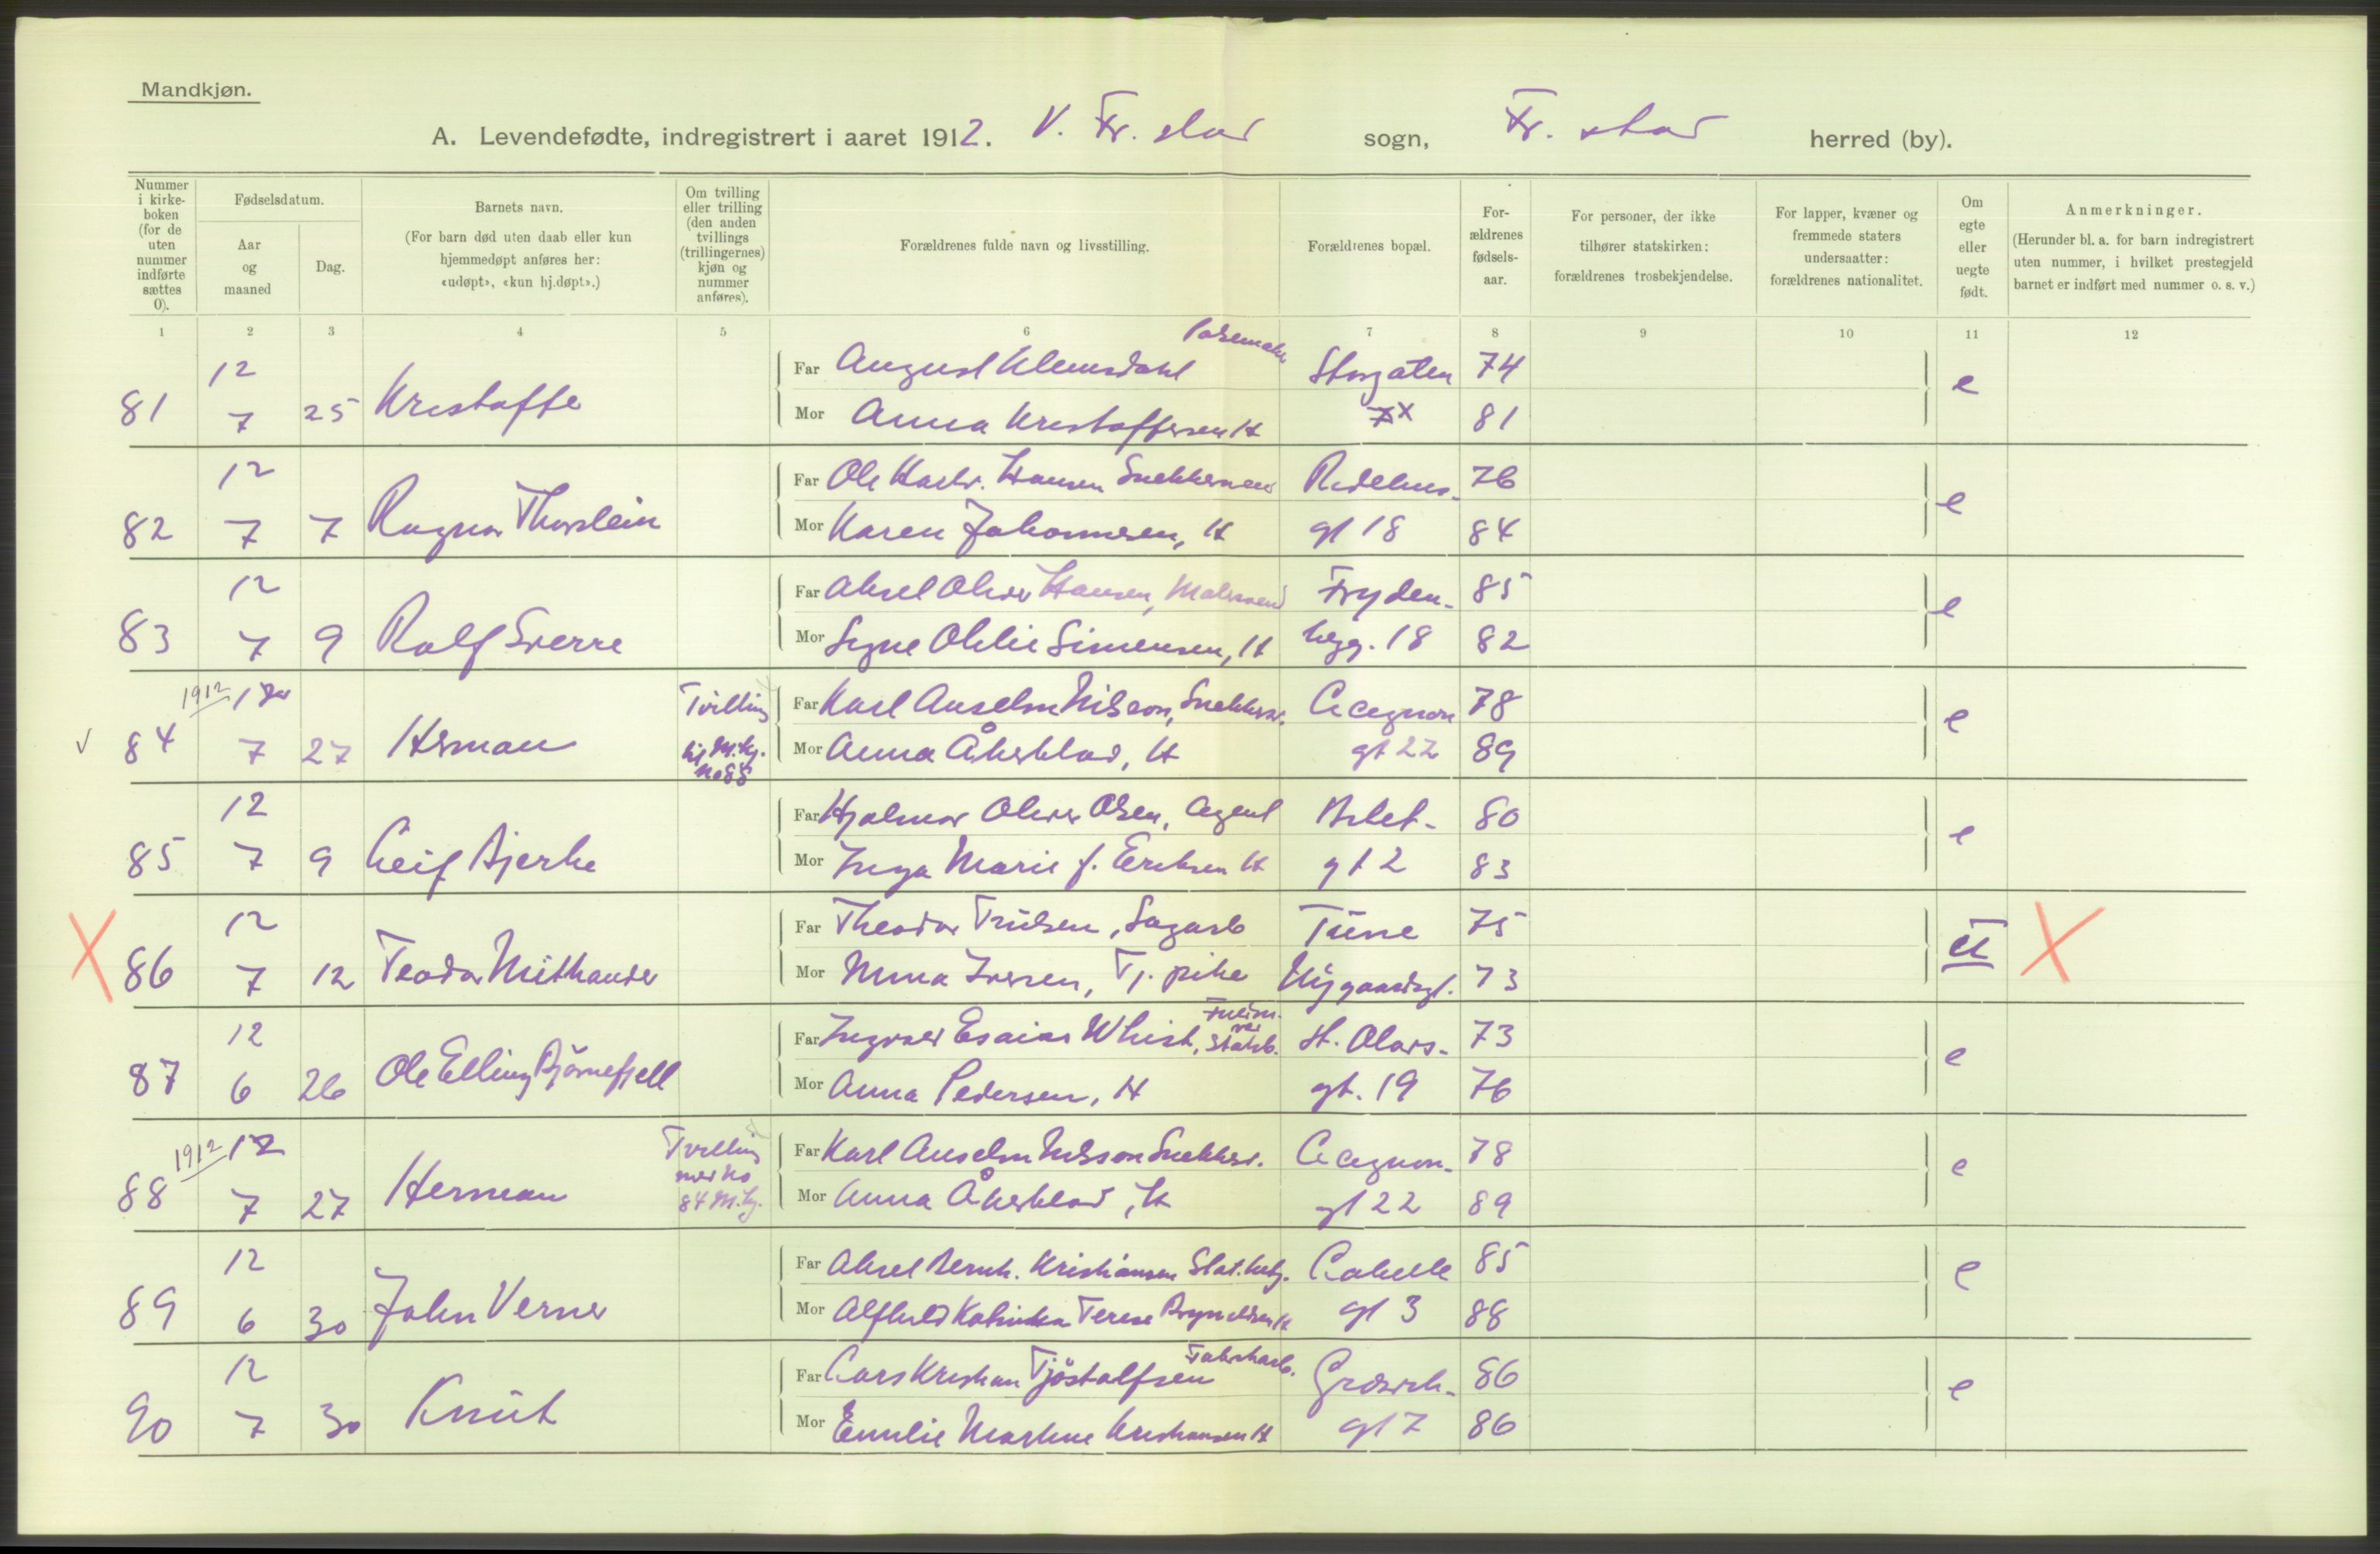 Mandkjøn.
A. Levendefødte, indregistrert i aaret 1912. V. Fr. stad sogn, Fr. stad herred (by).
Nummer i kirke-boken (for de uten nummer indførte sættes 0).
Fødselsdatum.
Aar og maaned
Dag.
Barnets navn.
(For barn død uten daab eller kun hjemmedøpt anføres her: «udøpt», «kun hj.døpt».)
Om tvilling eller trilling (den anden tvillings (trillingernes) kjøn og nummer anføres).
Forældrenes fulde navn og livsstilling.
Forældrenes bopæl.
For-ældrenes fødsels-aar.
For personer, der ikke tilhører statskirken: forældrenes trosbekjendelse.
For lapper, kvæner og fremmede staters undersaatter: forældrenes nationalitet.
Om egte eller uegte født.
Anmerkninger.
(Herunder bl. a. for barn indregistrert uten nummer, i hvilket prestegjeld barnet er indført med nummer o. s. v.)
1 2 3 4 5 6 7 8 9 10 11 12
12 Far August Klemsdahl Storgaten 74
81 7 25 Kristoffe Mor Anna Kristoffersen H 7x 81 e
12 Far Ole Hansen 76
82 7 7 Ragnar Thorstein Mor Karen Johannesen, H gt 18 84 e
12 Far Aksel Oliver Hansen, Malersvend Fryden- 85
83 7 9 Rolf Sverre Mor Signe Otilie Simensen, H begg. 18 82 e
1912 12 Tvilling Far Karl Anselm Nilsson, Snekker. Cicignon 78
v 84 7 27 Herman M.kj. no 88 Mor Anna Åkerblad, H gt 22 89 e
12 Far Hjalmar Oliver Olsen, Agent Arbei- 80
85 7 9 Leif Bjerke Mor Inga Marie f. Eriksen H gt 2 83 e
12 Far Theodor Trulsen, Sagarb Tune 75
86 7 12 Teodor Mor Iversen, Tj. pike Nygaardsgt. 73 u
12 Far Ingvald Esaias Whist, St. Olavs- 73
87 6 26 Ole Elling Bjørnefjell Mor Anna Pedersen, H gt. 19 76 e
1912 12 Tvilling Far Karl Anselm Nilsson Snekker. Cicignon- 78
88 7 27 Herman med No 84 M.kj. Mor Anna Åkerblad, H gt 22 89 e
12 Far Aksel Bernh. Kristiansen Stat. betj. Cabelle 85
89 6 30 John Verner Mor Alfhild Katinka Terese H gt 3 88 e
12 Far Lars Kristian Tjøstolfsen Fabrikarb. 86
90 7 30 Knut Mor Emilie Martine Kristiansen H gt 7 86 e